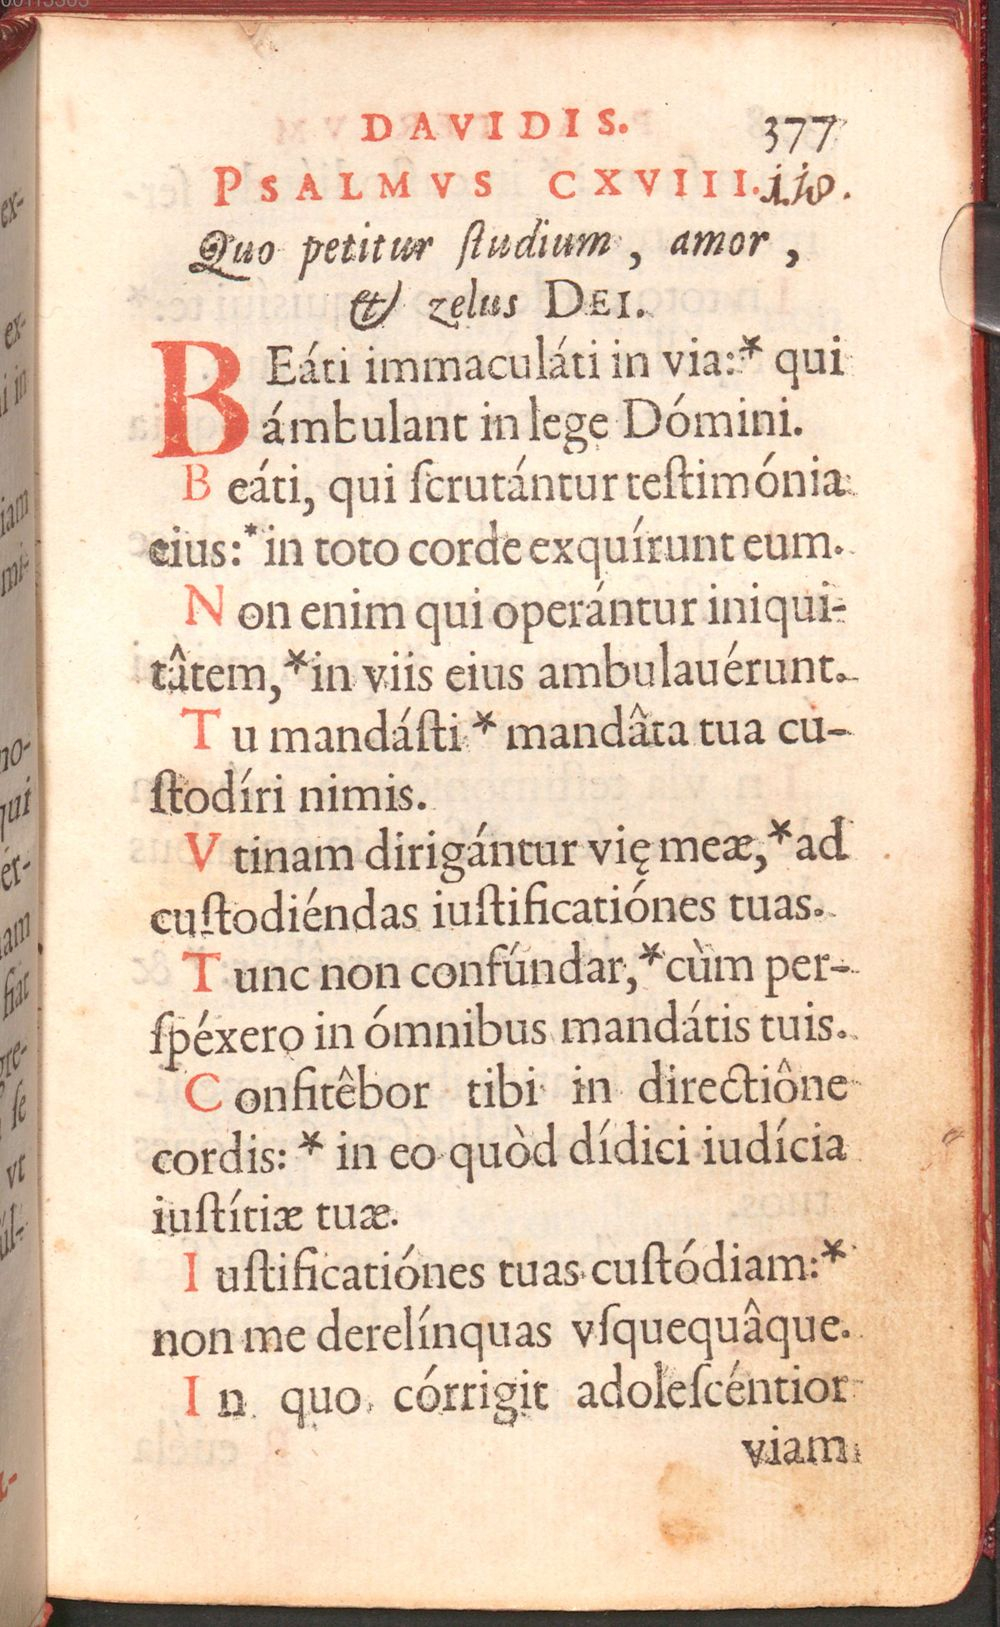 DAVIDIS. 377
PSALMVS CXVIII. 118.
Quo petitur ſtudium, amor,
& zelus DEI.
BEáti immaculáti in via:* qui
ámbulant in lege Dómini.
Beáti, qui ſcrutántur teſtimónia
eius:* in toto corde exquírunt eum.
Non enim qui operántur iniqui-
tâtem,* in viis eius ambulauérunt.
Tu mandáſti * mandâta tua cu-
ſtodíri nimis.
Vtinam dirigántur vię meæ,* ad
cuſtodiéndas iuſtificatiónes tuas.
Tunc non confúndar,* cùm per-
ſpéxero in ómnibus mandátis tuis.
Confitêbor tibi in directiône
cordis: * in eo quòd dídici iudícia
iuſtítiæ tuæ.
Iuſtificatiónes tuas cuſtódiam:*
non me derelínquas vſquequâque.
In quo córrigit adoleſcéntior
viam